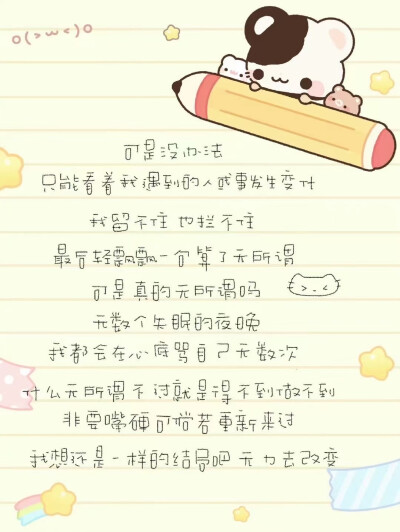 o(>w<)o
可是没办法
只能看着我遇到的人或事发生变什
我留不住 也拦不住
最后轻飘飘一句算了无所谓
可是真的无所谓吗
无数个失眠的夜晚
我都会在心底骂自己无数次
什么无所谓不过就是得不到做不到
非要嘴硬可倘若重新来过
我想还是一样的结局吧 无力去改变